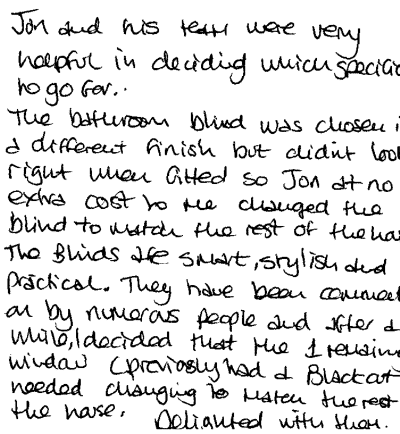 Jon and his team were very
helpful in deciding which specific
to go for..
The bathroom blind was chosen i
a different finish but didn't loo
right when fitted so Jon at no
extra cost to me changed the
blind to match the rest of the ho
The Blinds are smart, stylish and
Practical. They have been comment
on by numerous people and after a
while, I decided that the 1 remain
window (previously had a Blackout
needed changing to match the rest
the house. Delighted with them.